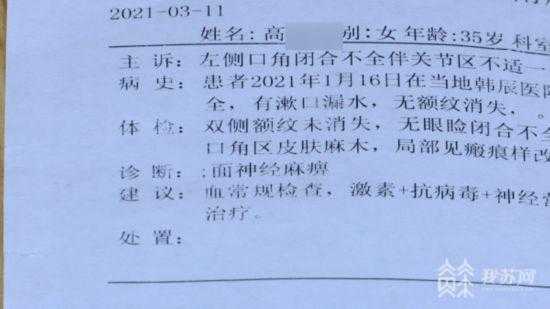 2021-03-11
姓名:高 别:女 年龄:35岁 科室
主 诉: 左侧口角闭合不全伴关节区不适一
病 史: 患者2021年1月16日在当地韩辰医院
全，有漱口漏水，无额纹消失，。
体 检: 双侧额纹未消失，无眼睑闭合不全
口角区皮肤麻木，局部见瘢痕样改
诊 断: 面神经麻痹
建 议: 血常规检查，激素+抗病毒+神经营
治疗。
处 置:
我苏网